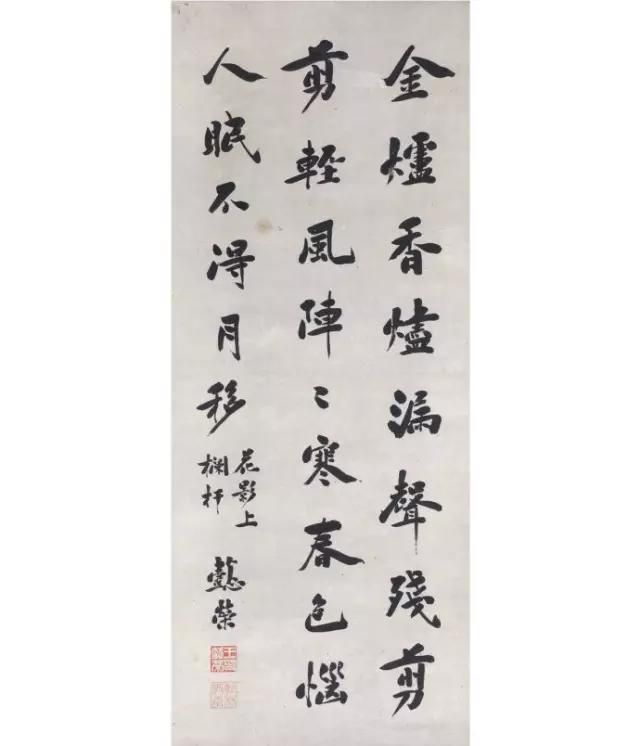 金爐香燼漏聲殘剪
剪輕風陣〻寒春色惱
人眠不得月移
花影上
欄杆
懿榮